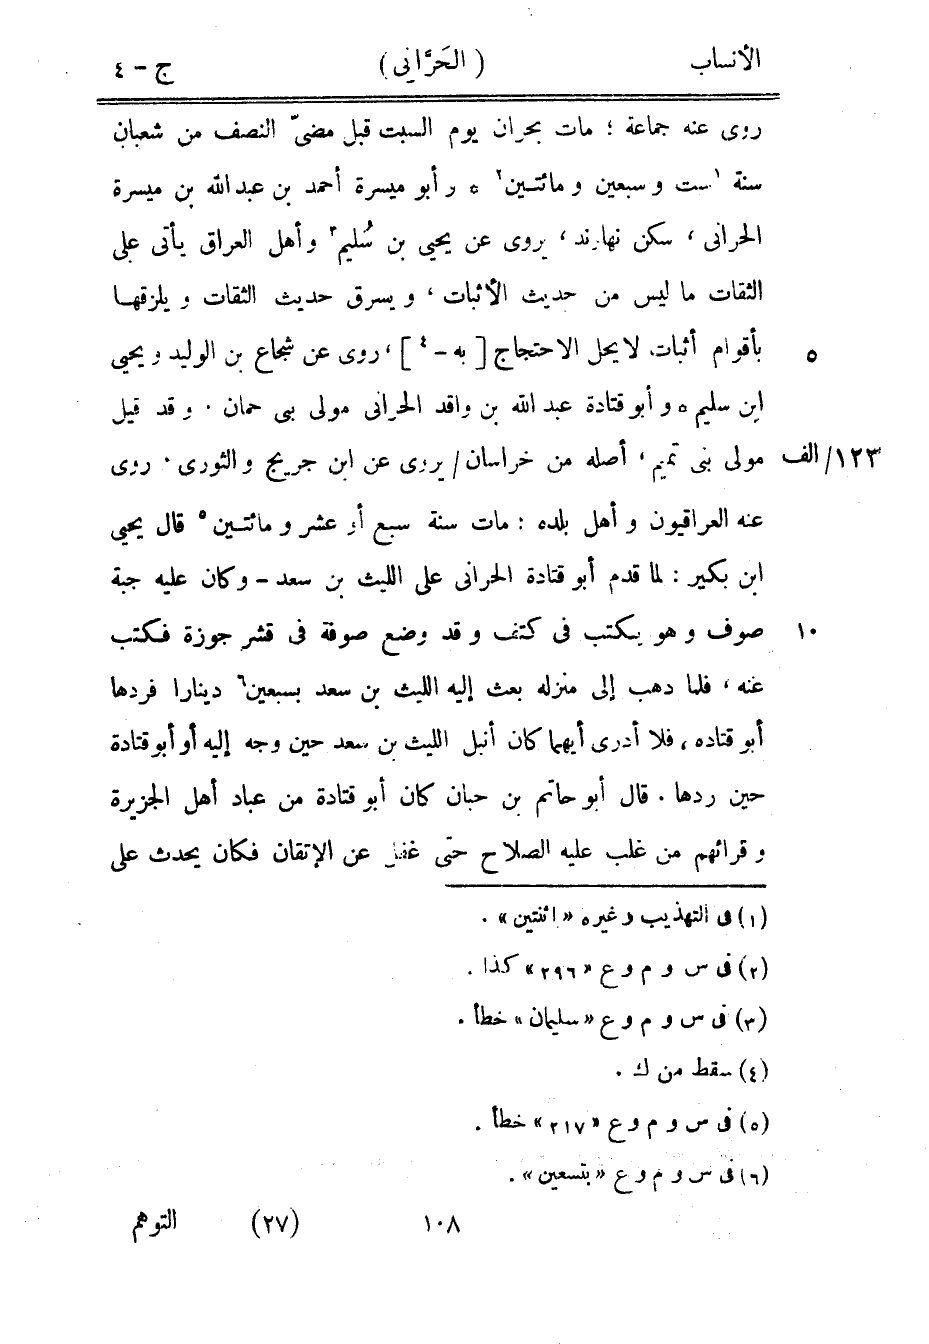 الأنساب (الحَرَّانى) ج - ٤
روى عنه جماعة ؛ مات بحران يوم السبت قبل مضىّ النصف من شعبان
سنة ١ست و سبعين و مائتـين٢ ه و أبو ميسرة أحمد بن عبد الله بن ميسرة
الحرانى ، سكن نهاوند ، يروى عن يحيى بن سُليم٣ و أهل العراق يأتى على
الثقات ما ليس من حديث الأثبات ، و يسرق حديث الثقات و يلزقهـا
بأقوام أثبات لا يحل الاحتجاج [ به - ٤ ] ، روى عن شجاع بن الوليد و يحيى ٥
ابن سليم ه و أبو قتادة عبد الله بن واقد الحرانى مولى بنى حمان . و قد قيل
مولى بنى تميم ، أصله من خراسان / يروى عن ابن جريج و الثورى . روى ١٢٣/ الف
عنه العراقيون و أهل بلده : مات سنة سبع أو عشر و مائتـين ٥ قال يحيى
ابن بكير : لما قدم أبو قتادة الحرانى على الليث بن سعد - وكان عليه جبة
صوف و هو يكتب فى كتف و قد وضع صوفة فى قشر جوزة فكتب ١٠
عنه ، فلما دهب إلى منزله بعث إليه الليث بن سعد بسبعين٦ دينارا فردها
أبو قتاده ، فلا أدرى أيهما كان أنبل الليث بن سعد حين وجه إليه أو أبو قتادة
حين ردها . قال أبو حاتم بن حبان كان أبو قتادة من عباد أهل الجزيرة
و قرائهم من غلب عليه الصلاح حتى غفل عن الإتقان فكان يحدث على
(١) فى التهذيب و غيره « اثنتين » .
(٢) فى س و م و ع « ٢٩٦ » كذا .
(٣) فى س و م و ع « سليمان » خطأ .
(٤) سقط من ك .
(٥) فى س و م و ع « ٢١٧ » خطأ .
(٦) فى س و م و ع « بتسعين » .
١٠٨ (٢٧) التوهم